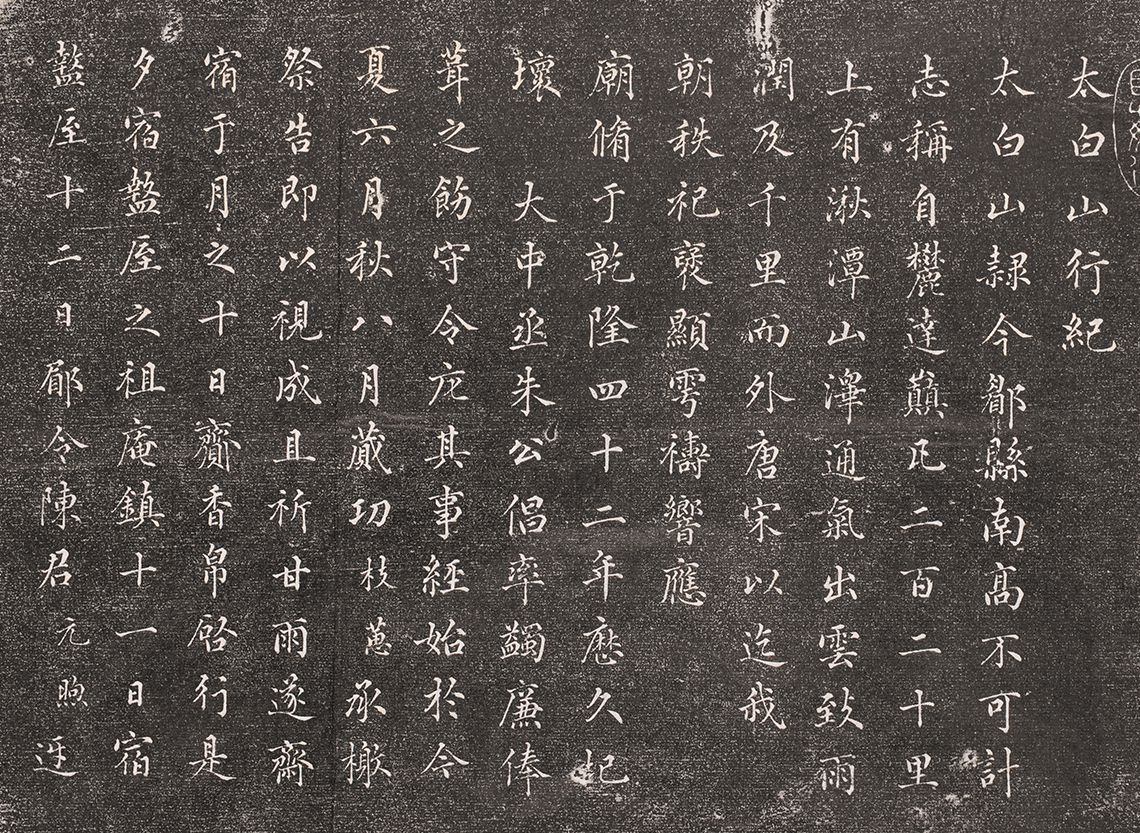 太白山行紀
太白山隷今郿縣南高不可計
志稱自麓達巔凡二百二十里
上有湫潭山澤通氣出雲致雨
潤及千里而外唐宋以迄我
朝秩祀褒顯雩禱響應
廟脩于乾隆四十二年歷久圮
壞 大中丞朱公倡率蠲廉俸
葺之飭守令庀其事經始於今
夏六月秋八月蕆功枝蕙承檄
祭告即以視成且祈甘雨遂齋
宿于月之十日齎香帛啟行是
夕宿盩厔之祖庵鎮十一日宿
盩厔十二日郿令陳君元煦迓